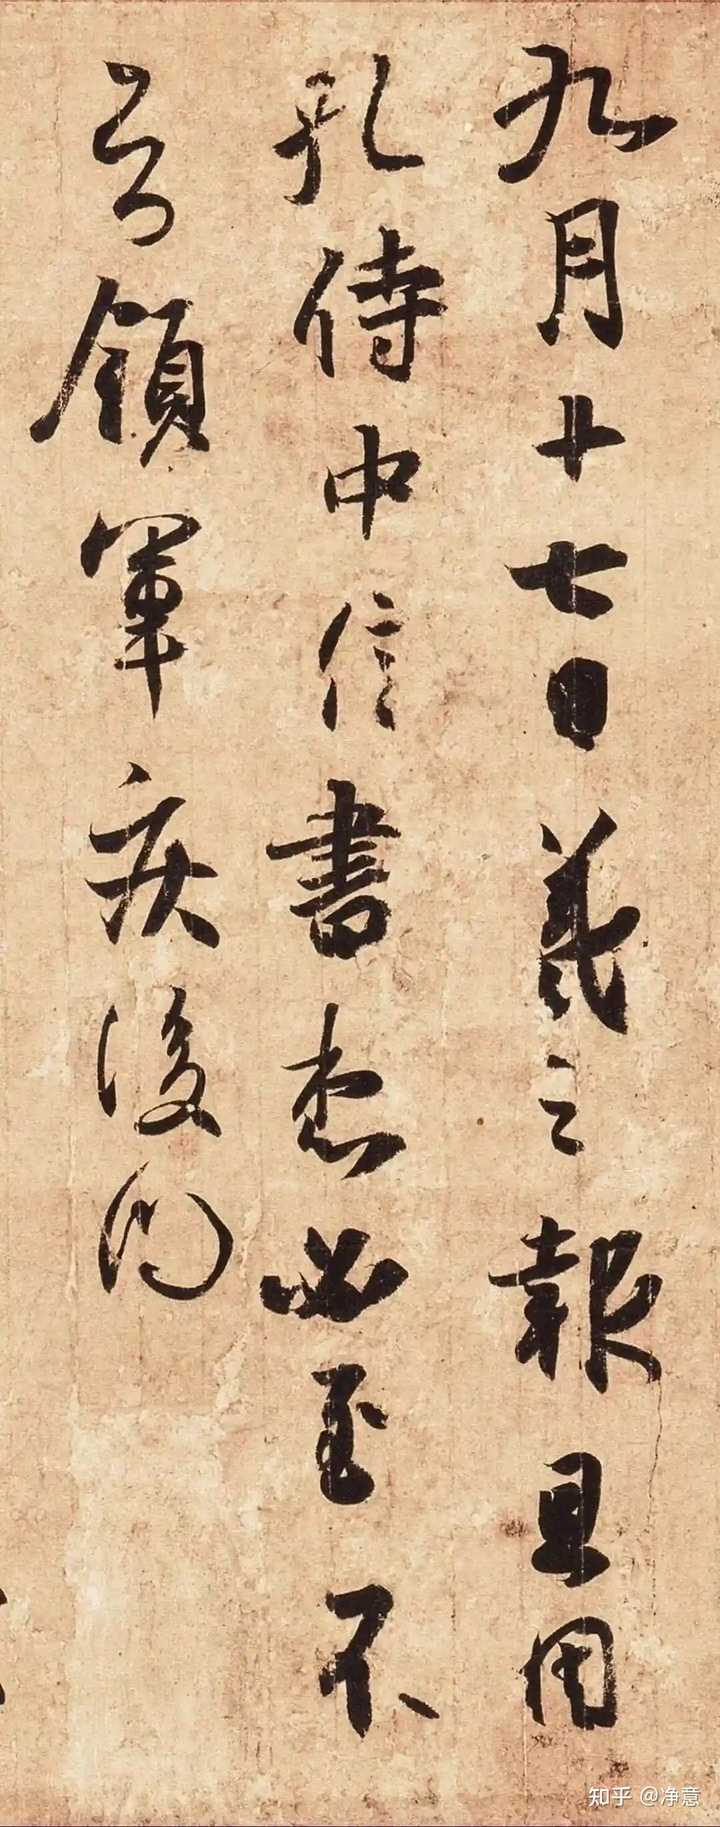 九月十七日羲之報且因
孔侍中信書想必至不
知領軍疾後問
知乎 @净意